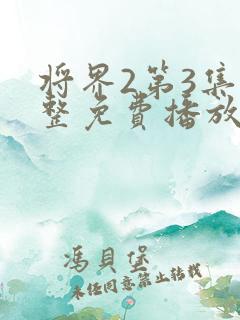 将界2第3集
整免費播放
馮貝堡
未经同意禁止转载